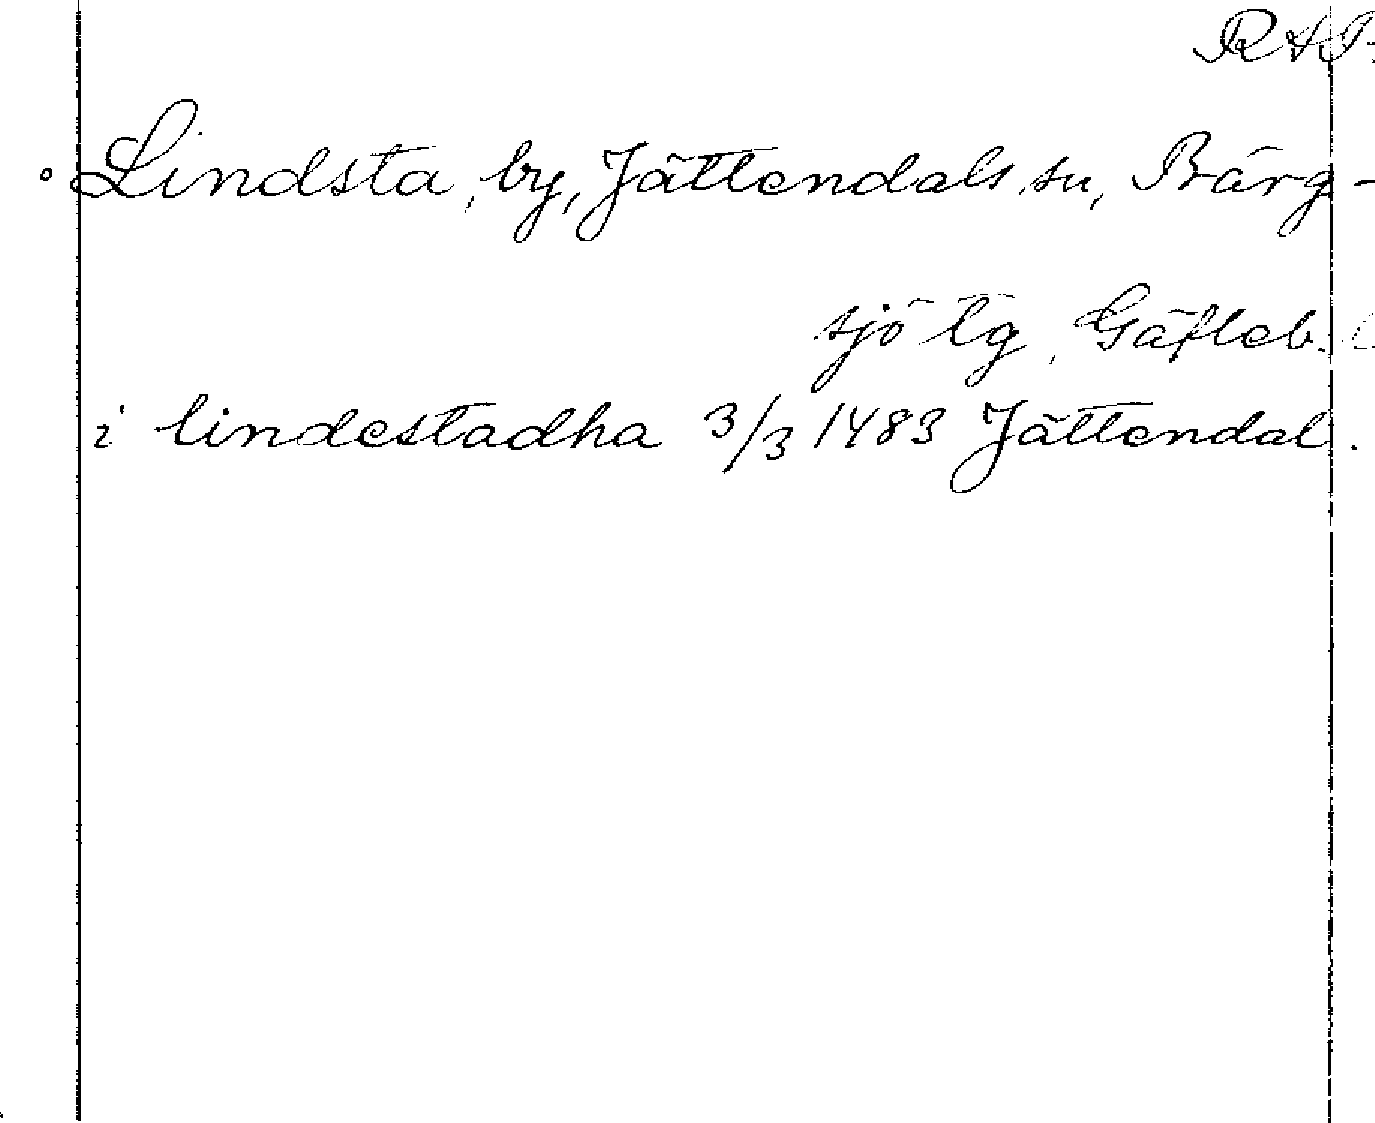 RAP.
Lindsta, by, Jättendals sn, Bärg-
sjö tg, Gäfleb.
i lindestadha 3/3 1483 Jättendal.